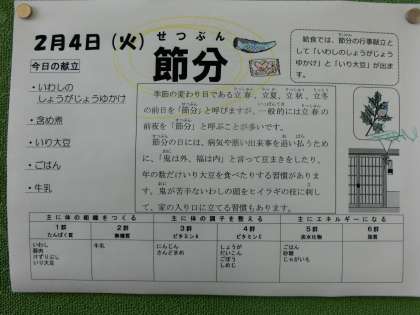 2月4日(火)
せつぶん
節分
給食では、節分の行事献立と
して「いわしのしょうがじょうゆ
ゆかけ」と「いり大豆」が出ま
す。
今日の献立
・いわしの
しょうがじょうゆかけ
・含め煮
・いり大豆
・ごはん
・牛乳
季節の変わり目である立春、立夏、立秋、立冬
の前日を「節分」と呼びますが、一般的には立春の
前夜を「節分」と呼ぶことが多いです。
節分の日には、病気や悪い出来事を追い払うため
に、「鬼は外、福は内」と言って豆まきをしたり、
年の数だけいり大豆を食べたりする習慣があり
ます。鬼が苦手ないわしの頭をヒイラギの枝に刺し
て、家の入り口に立てる習慣もあります。
主に体の組織をつくる
主に体の調子を整える
主にエネルギーになる
1群
たんぱく質
2群
無機質
3群
ビタミンA
4群
ビタミンC
5群
炭水化物
6群
脂質
いわし
豚肉
けずりぶし
いり大豆
牛乳
にんじん
さんどまめ
しょうが
だいこん
ごぼう
しめじ
ごはん
砂糖
じゃがいも